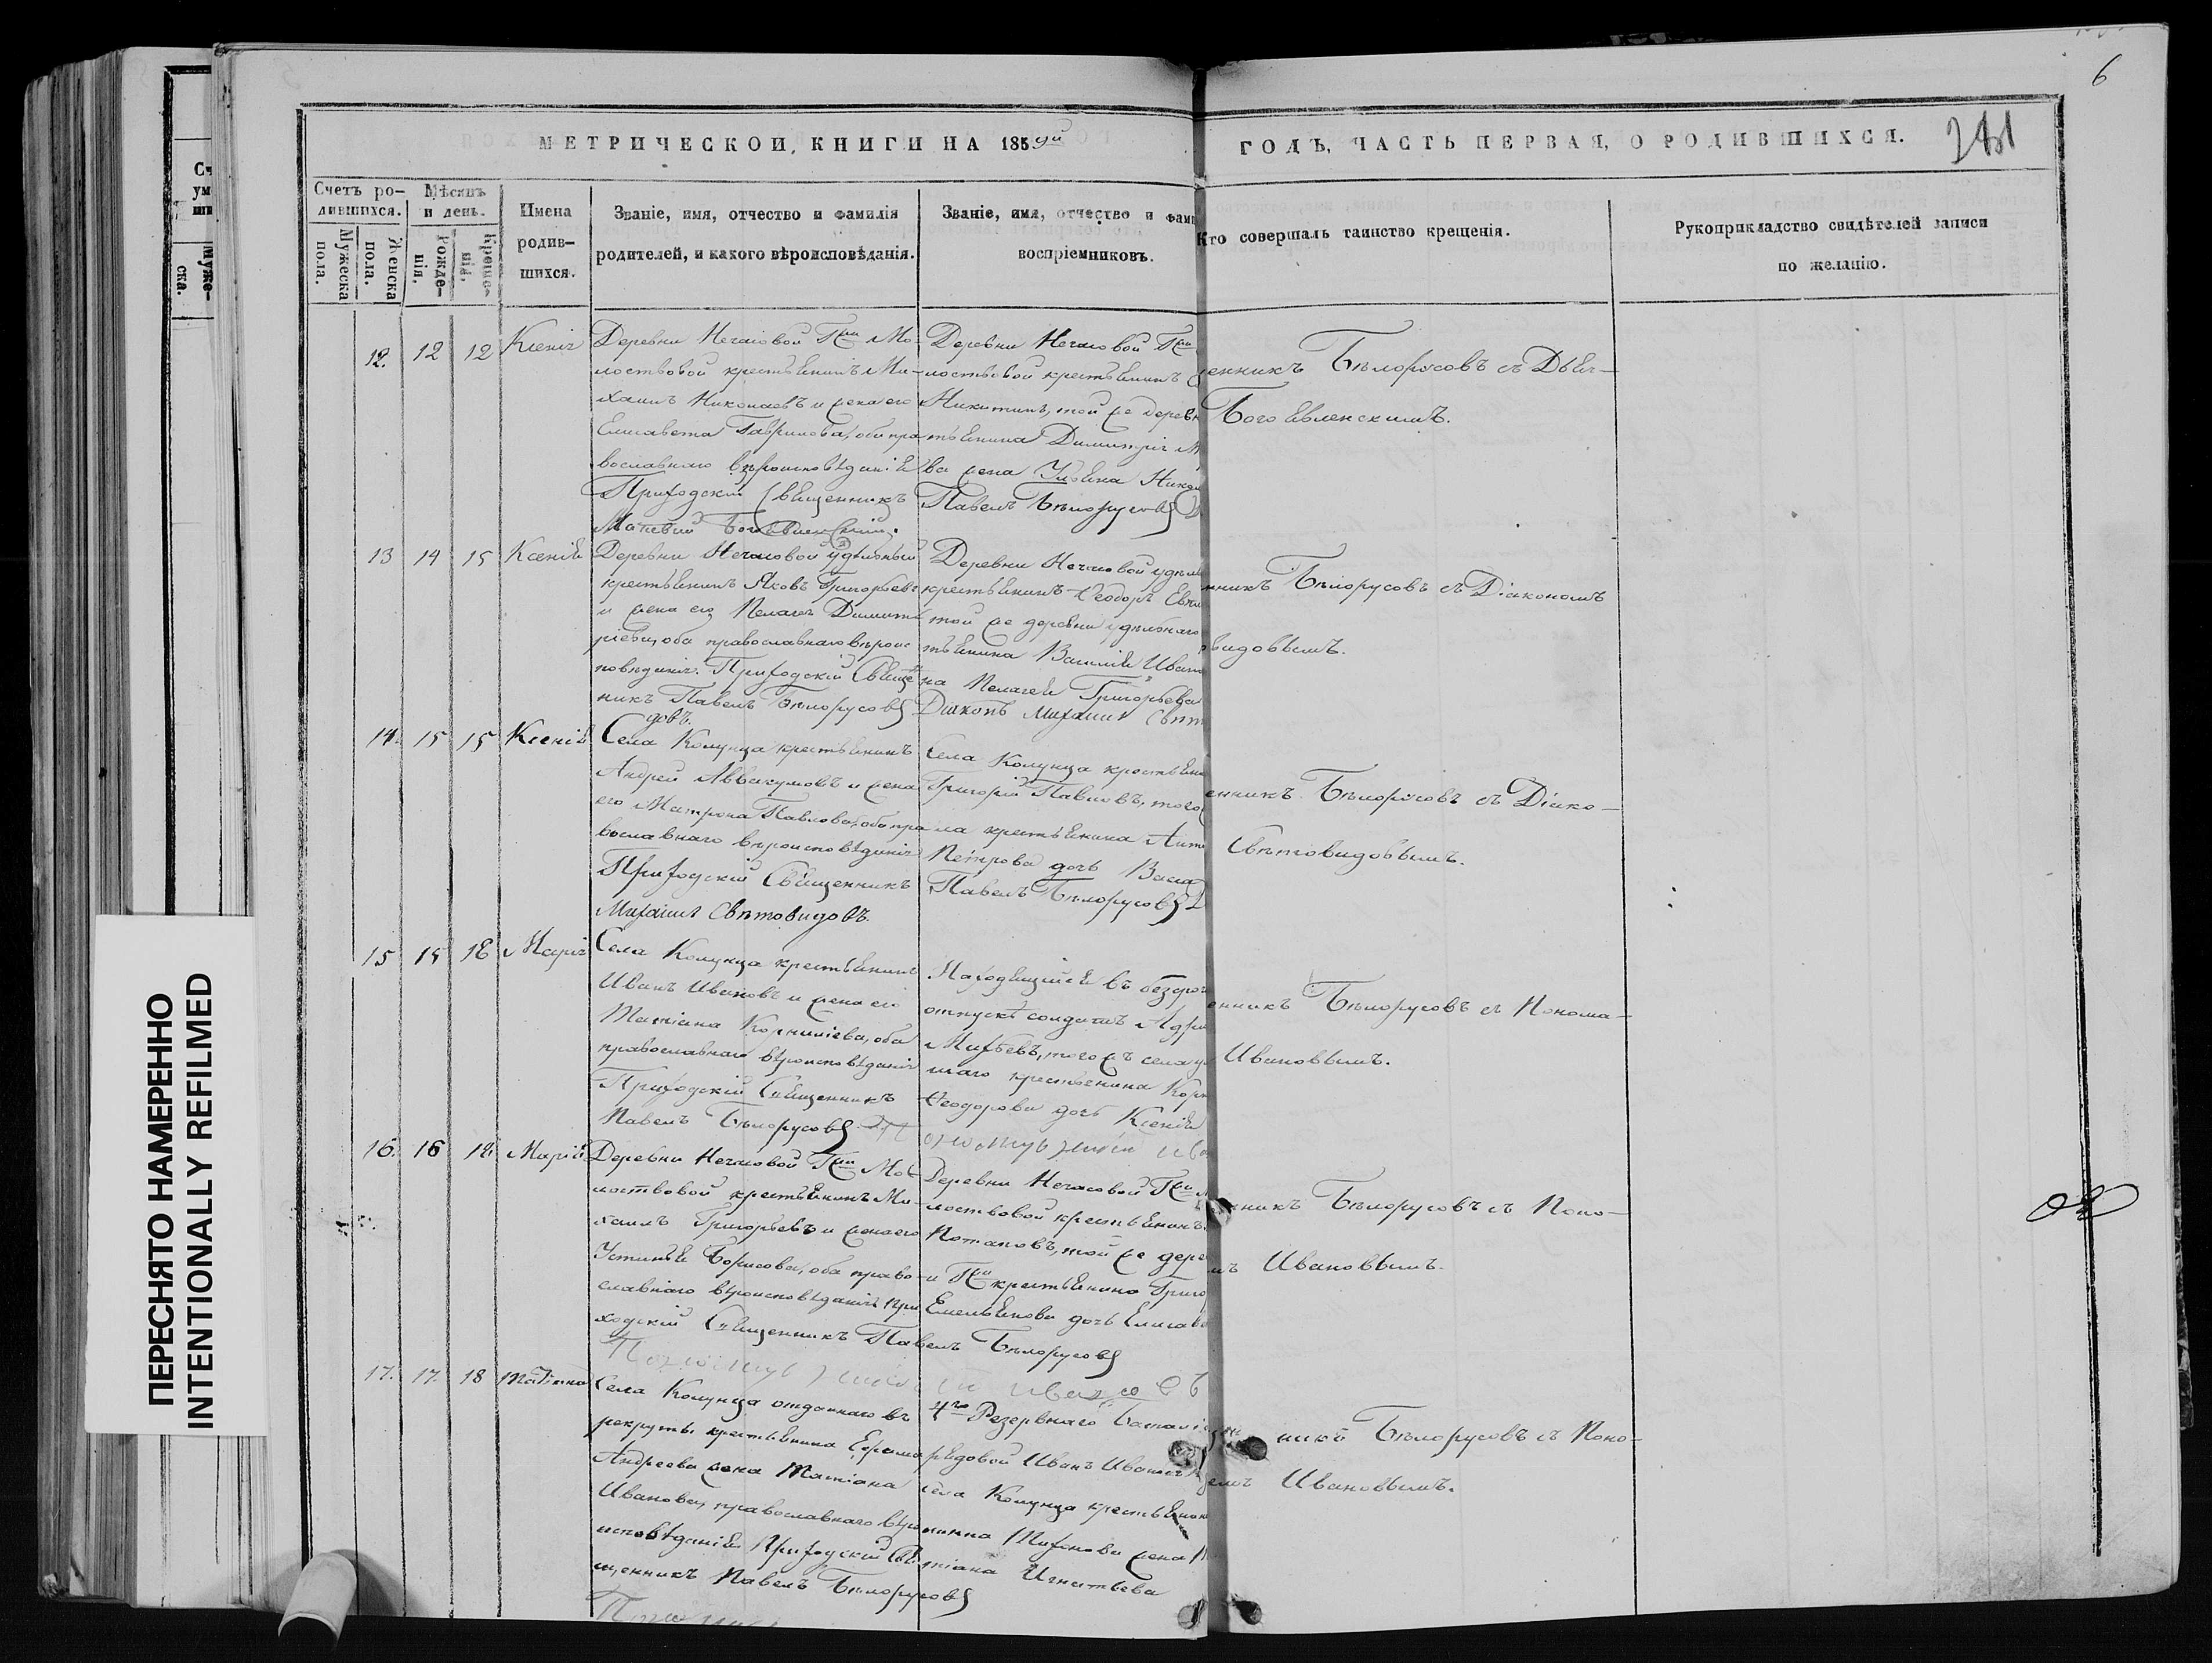 6
МЕТРИЧЕСКОЙ КНИГИ НА 1859й
ГОДЪ, ЧАСТЬ ПЕРВАЯ, О РОДИВШИХСЯ.
Счетъ ро-
дившихся.
Мужеска
пола.
Женска
пола.
Мѣсяцъ
и день.
Рожде-
нія.
Креще-
нія.
Имена
родив-
шихся.
Званіе, имя, отчество и фамилія
родителей, и какого вѣроисповѣданія.
Званіе, имя, отчество и фами
воспріемниковъ.
Кто совершалъ таинство крещенія.
Рукоприкладство свидѣтелей записи
по желанію.
12. 12 12 Ксенія
Деревни Нечасовой Гжи Мо-
лостовой крестьянинъ Ми-
хаилъ Николаевъ и жена его
Елисавета Гаврилова, оба пра-
вославнаго вѣроисповѣданія
Приходскій Священникъ
Деревни Нечасовой Гжи
лостовой крестьянинъ
Никитинъ, той же деревн
тьянина Димитрія М
ва жена Никол
Павелъ Бѣлорусовъ
енникъ Бѣлорусовъ съ Дьяч-
Богоявленскимъ.
13 14 15 Ксенія
Деревни Нечасовой удѣльный
крестьянинъ Яковъ Григорьевъ
и жена его Пелагея Димит-
ріева, оба православнаго вѣроис
повѣданія. Приходскій Священ
никъ Павелъ Бѣлорусовъ
Деревни Нечасовой удѣль
крестьянинъ Ѳеодоръ
той же деревни удѣльнаго
тьянина Василія Ивано
на Пелагея Григорьева
Діаконъ Михаилъ Свѣто
довъ.
нникъ Бѣлорусовъ съ Діакономъ
видовымъ.
14. 15 15 Ксенія
Села Колунца крестьянинъ
Андрей Аввакумовъ и жена
его Матрона Павлова, оба пра
вославнаго вѣроисповѣданія
Приходскій Священникъ
Михаилъ Свѣтовидовъ.
Села Колунца крестьяни
Григорій Павловъ, того
ла крестьянина
Петрова дочь Васса
Павелъ Бѣлорусовъ Д
енникъ Бѣлорусовъ съ Діако-
Свѣтовидовымъ.
15 15 18 Марія
Села Колунца крестьянинъ
Иванъ Ивановъ и жена его
Татіана Корнилiева, оба
православнаго вѣроисповѣданія
Приходскій Священникъ
Павелъ Бѣлорусовъ
Находящійся въ безсроч
отпускѣ солдатъ
того жъ села
наго крестьянина Корн
Ѳеодорова дочь Ксенія
енникъ Бѣлорусовъ съ Понома-
Ивановымъ.
16. 16 18 Марія
Деревни Нечасовой Гжи Мо-
лостовой крестьянинъ Ми-
хаилъ Григорьевъ и жена его
Устинья Борисова, оба право-
славнаго вѣроисповѣданія При
ходскій Священникъ Павелъ Бѣлорусовъ
Деревни Нечасовой Гжи
лостовой крестьянинъ
Потаповъ, той же дере
и Гжи крестьянина Григо
Емельянова дочь Елисаве
нникъ Бѣлорусовъ съ Поно-
Ивановымъ.
17. 17. 18
Села Колунца отданнаго въ
рекруты крестьянина
Андреева жена Татіана
Иванова, православнаго вѣро
исповѣданія Приходскій Свя
щенникъ Павелъ Бѣлорусовъ
4го Резервнаго Баталіо
рядовой Иванъ Ивановъ
села Колунца крестьянина
жена
тіана Игнатьева
никъ Бѣлорусовъ съ Поно-
Ивановымъ.
ПЕРЕСНЯТО НАМЕРЕННО
INTENTIONALLY REFILMED